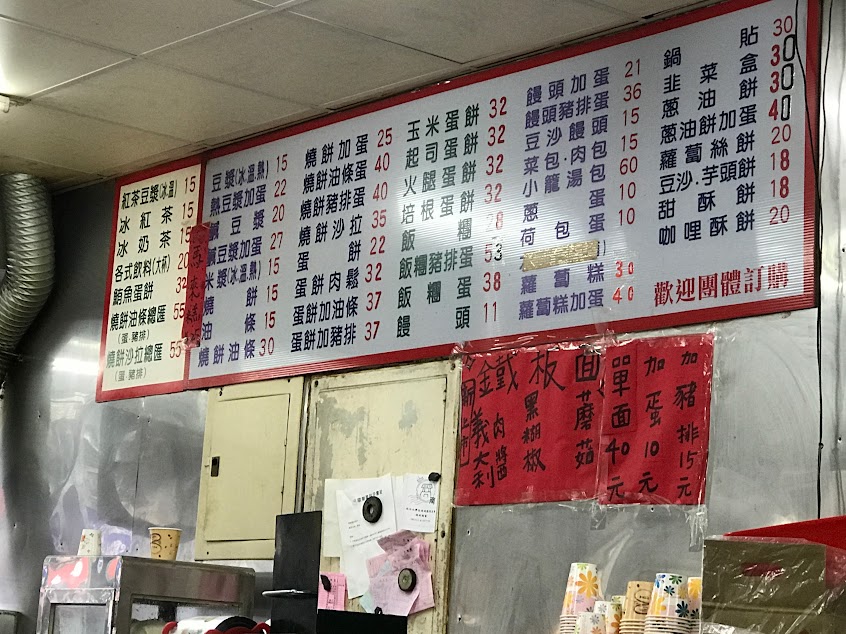 紅茶豆漿(冰溫) 15
冰紅茶 15
冰奶茶 15
各式飲料(大杯) 20
鮪魚蛋餅 32
燒餅油條總匯 55
(蛋.豬排)
燒餅沙拉總匯 55
(蛋.豬排)
豆漿(冰溫.熱) 15
熱豆漿加蛋 22
鹹豆漿 20
鹹豆漿加蛋 27
米漿(冰溫.熱) 15
燒餅 15
油條 15
燒餅油條 30
燒餅加蛋 25
燒餅油條蛋 40
燒餅豬排蛋 40
燒餅沙拉 35
蛋餅 22
蛋餅肉鬆 32
蛋餅加油條 37
蛋餅加豬排 37
玉米蛋餅 32
起司蛋餅 32
火腿蛋餅 32
培根蛋餅 32
飯糰 28
飯糰豬排蛋 53
飯糰蛋 38
饅頭 11
饅頭加蛋 21
饅頭豬排蛋 36
豆沙饅頭 15
菜包.肉包 15
小籠湯包 60
蔥蛋 10
荷包蛋 10
蘿蔔糕 30
蘿蔔糕加蛋 40
鍋貼 30
韭菜盒 30
蔥油餅 30
蔥油餅加蛋 40
蘿蔔絲餅 20
豆沙.芋頭餅 18
甜酥餅 18
咖哩酥餅 20
歡迎團體訂購
鐵板面
金義大利
肉醬
黑糊椒
蘑菇
單面40元
加蛋10元
加豬排15元